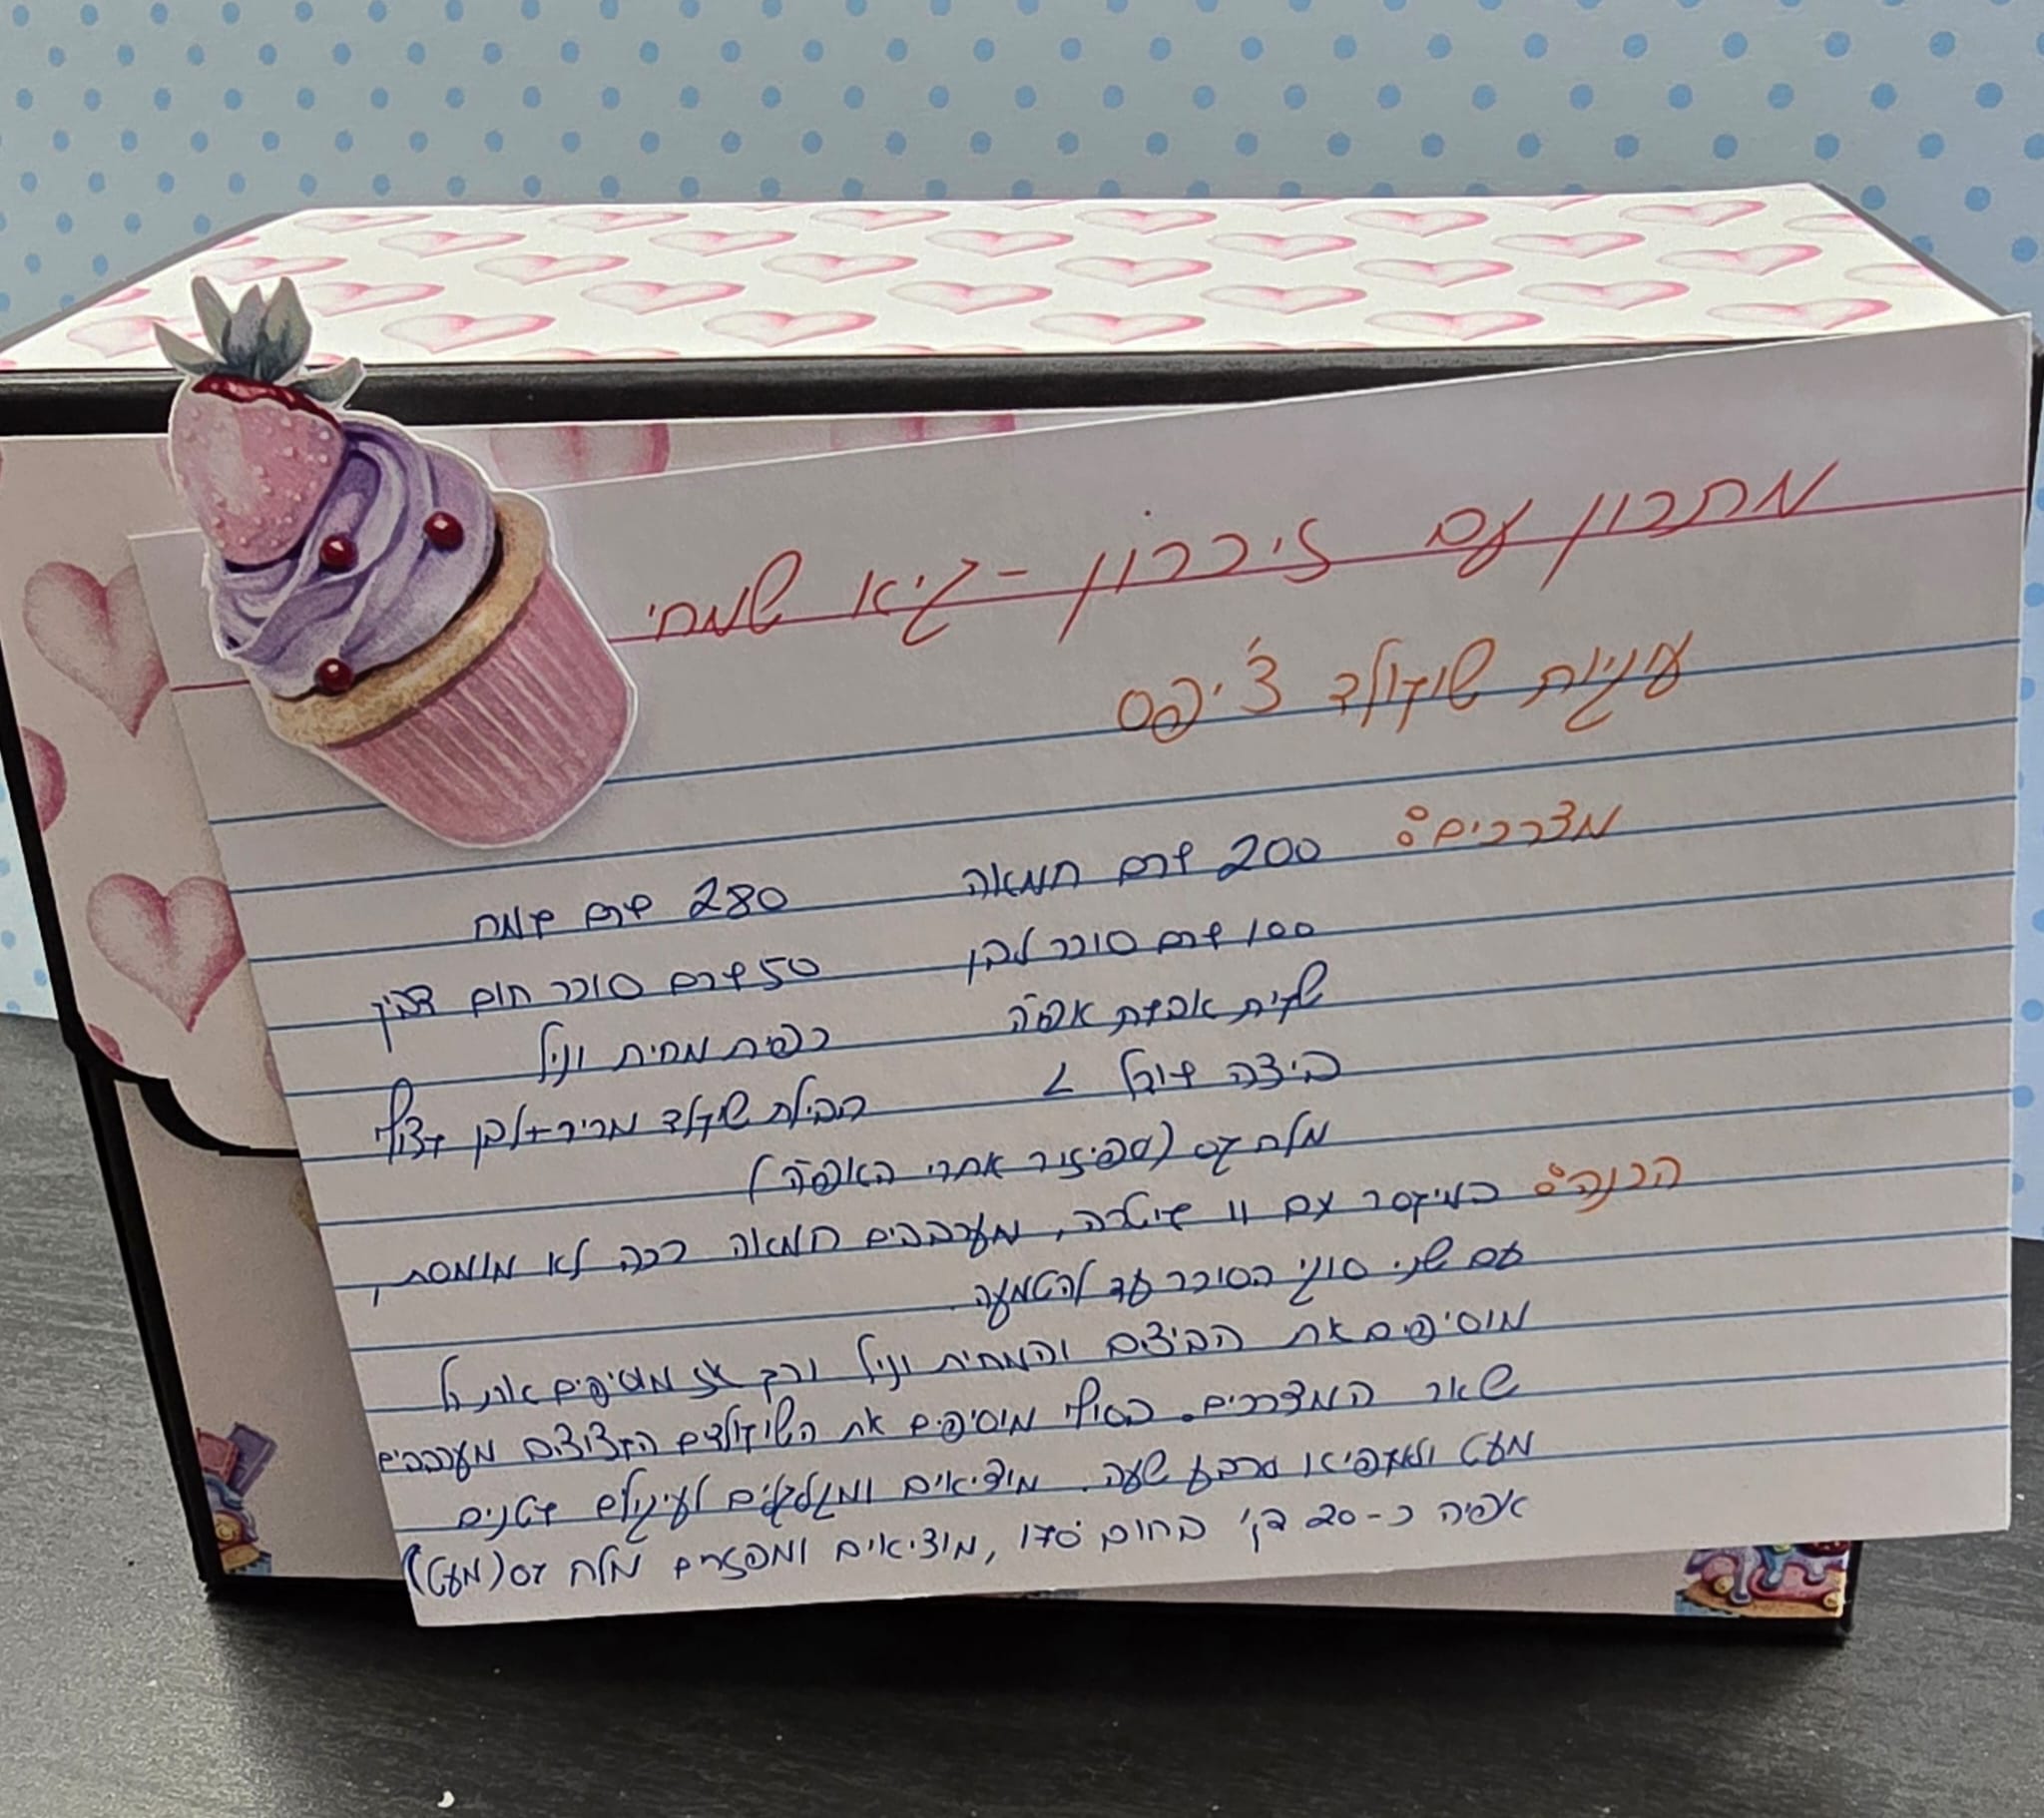 מתכון עם זיכרון - גיא שמחי
עוגיות שוקולד צ'יפס
מצרכים: 200 גרם חמאה 280 גרם קמח
100 גרם סוכר לבן 50 גרם סוכר חום בהיר
שקית אבקת אפיה כפית מחית וניל
ביצה גודל L חבילת שוקולד מריר+לבן קצוץ
מלח גס (לפיזור אחרי האפיה)
הכנה: במיקסר עם וו גיטרה, מערבבים חמאה רכה לא מומסת,
עם שני סוגי הסוכר עד להטמעה.
מוסיפים את הביצים והמחית וניל ורק אז מוסיפים את כל
שאר המצרכים. בסוף מוסיפים את השוקולדים הקצוצים מערבבים
מעט ולמקפיא לרבע שעה. מוציאים ומגלגלים לעיגולים קטנים
אפיה כ-20 דק' בחום 170°, מוציאים ומפזרים מלח גס (מעט)